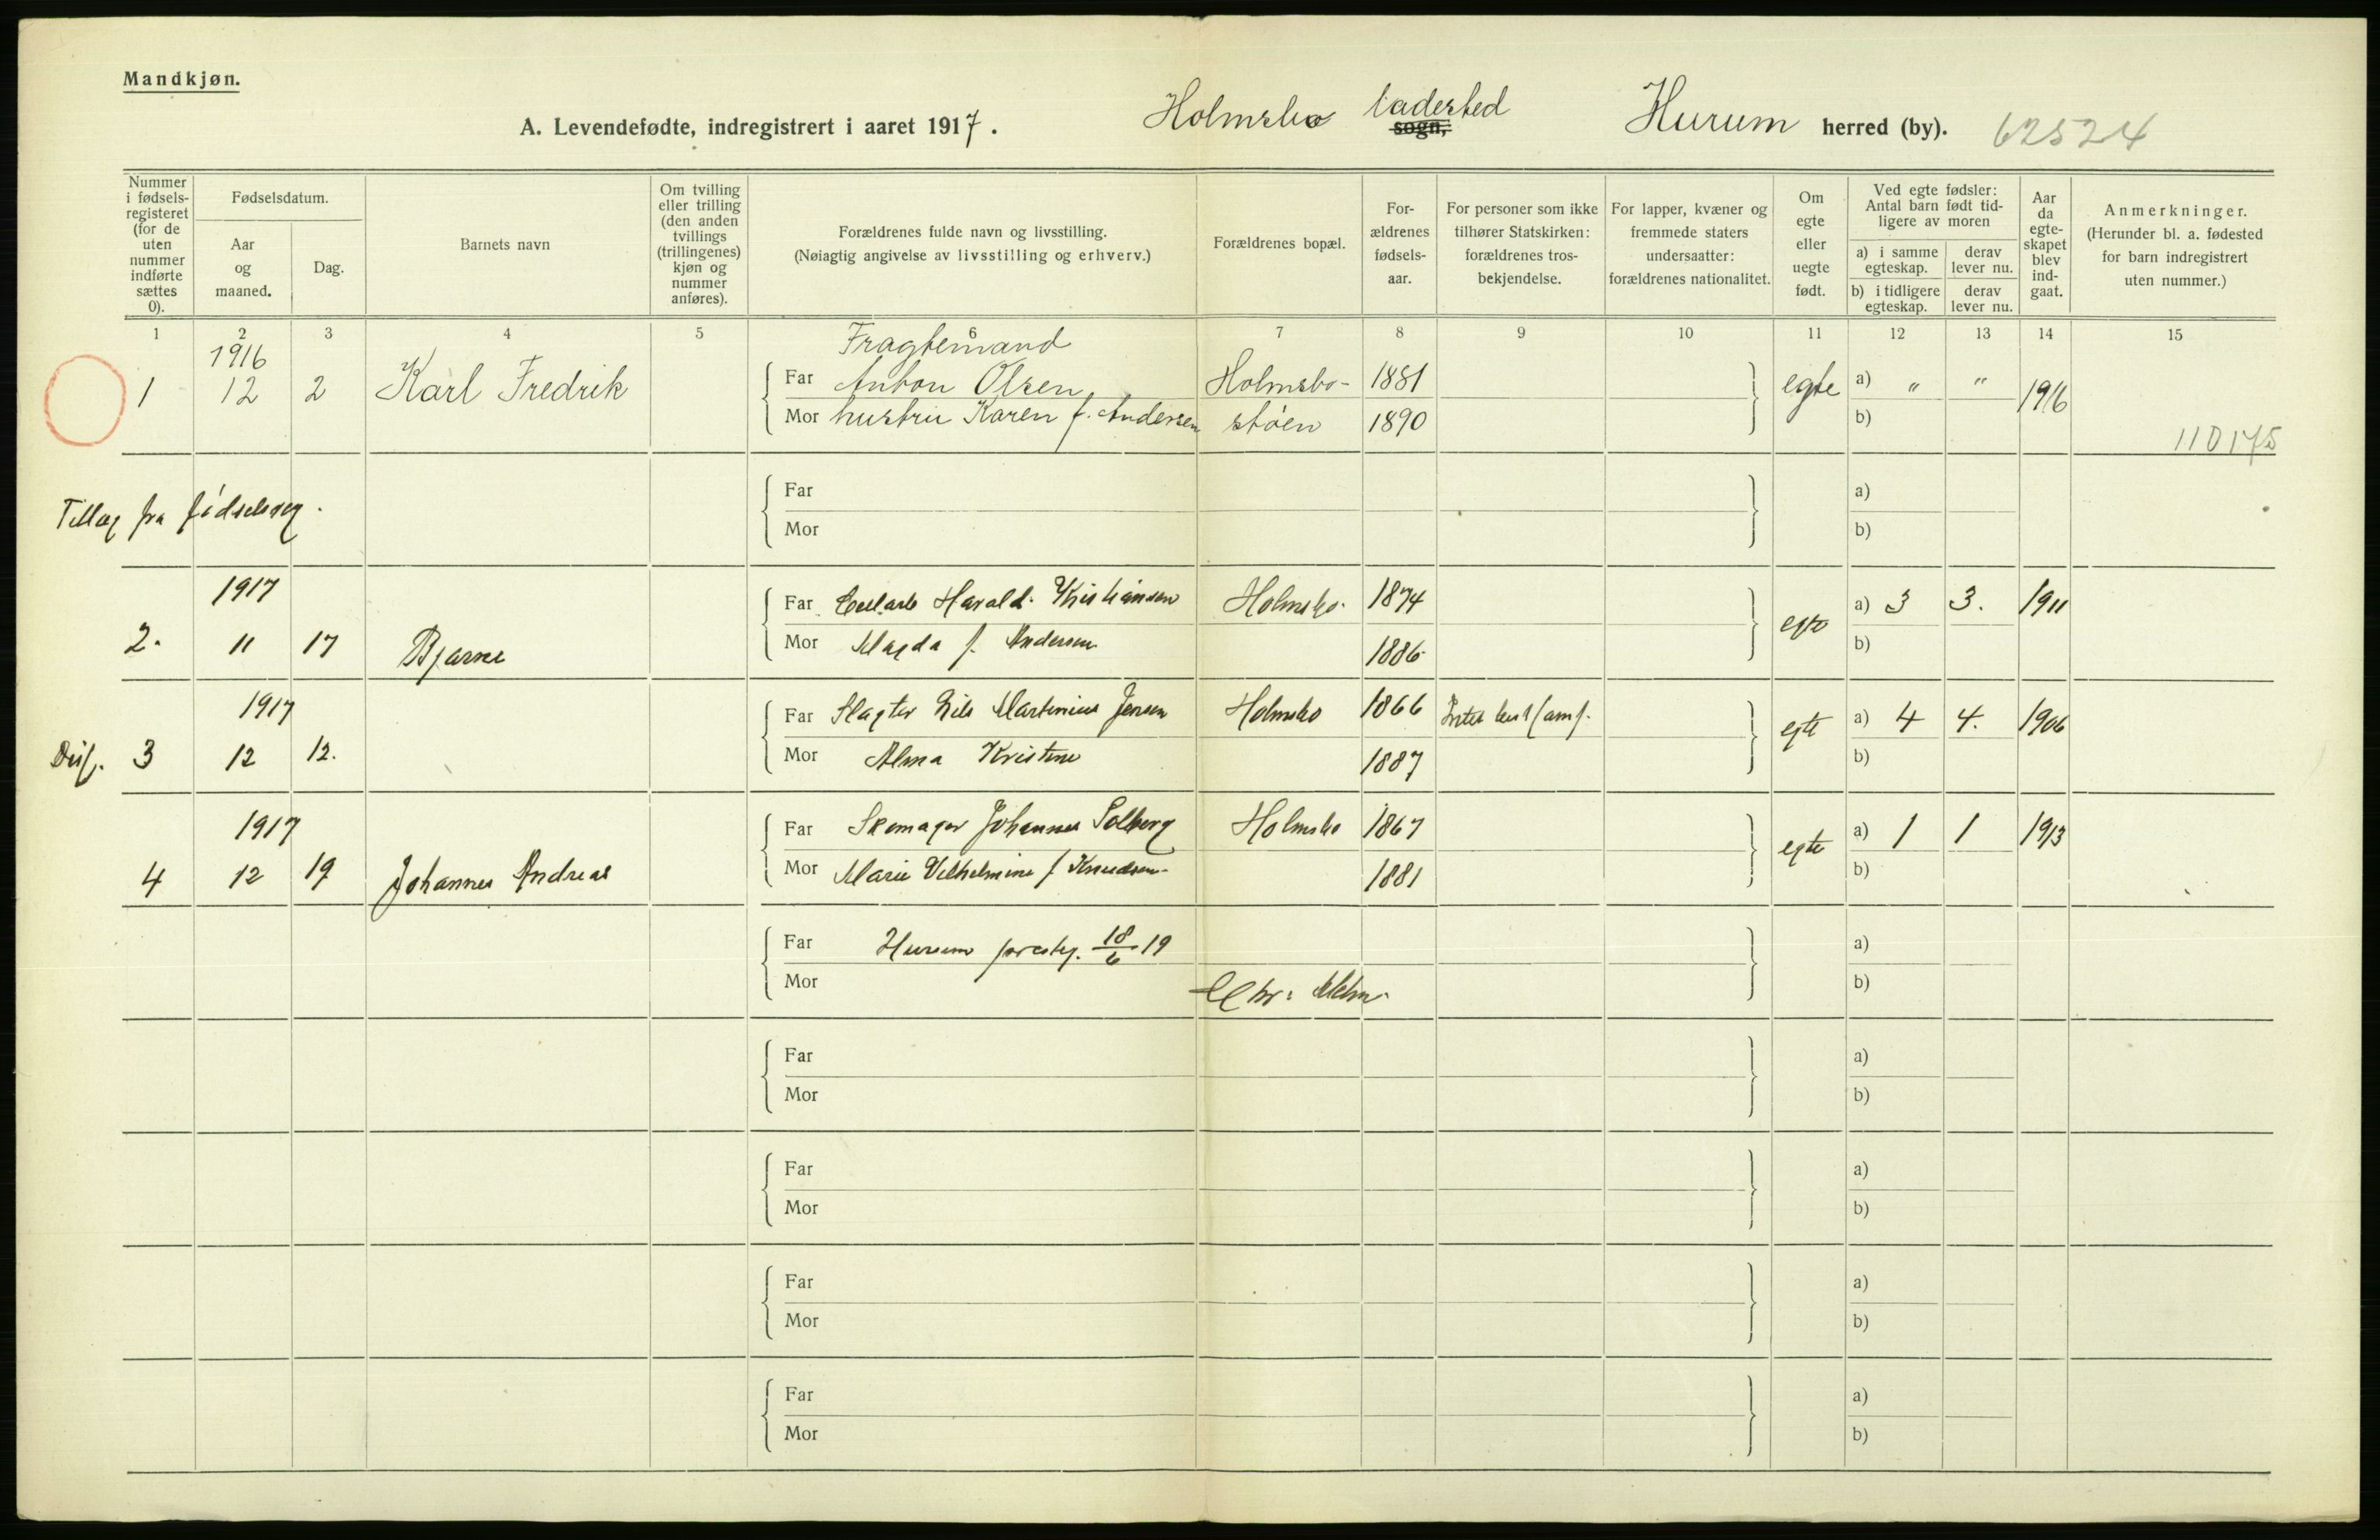 Mandkjøn.
A. Levendefødte, indregistrert i aaret 1917.
Holmsbo ladested
sogn,
Hurum herred (by).
62524
Nummer i fødsels-registeret (for de uten nummer indførte sættes 0).
Fødselsdatum.
Aar og maaned.
Dag.
Barnets navn
Om tvilling eller trilling (den anden tvillings (trillingenes) kjøn og nummer anføres).
Forældrenes fulde navn og livsstilling.
(Nøiagtig angivelse av livsstilling og erhverv.)
Forældrenes bopæl.
For-ældrenes fødsels-aar.
For personer som ikke tilhører Statskirken: forældrenes tros-bekjendelse.
For lapper, kvæner og fremmede staters undersaatter: forældrenes nationalitet.
Om egte eller uegte født.
Ved egte fødsler: Antal barn født tid-ligere av moren
a) i samme egteskap.
derav lever nu.
b) i tidligere egteskap.
derav lever nu.
Aar da egte-skapet blev ind-gaat.
Anmerkninger.
(Herunder bl. a. fødested for barn indregistrert uten nummer.)
1 2 3 4 5 6 7 8 9 10 11 12 13 14 15
1916
Fragtemand
1 12 2 Karl Fredrik Far Anton Olsen, Holmsbo- 1881 egte a) " " 1916
Mor hustru Karen f. Andersen støen 1890 b)
110175
Far a)
Tillæg fra fødselsreg.
Mor b)
1917 Far Harald Kristiansen Holmsbo 1874 egte a) 3 3. 1911
2. 11 17 Bjarne Mor Magda f. Andersen 1886 b)
1917 Far Slagter Nils Martinius Jensen Holmsbo 1866 egte a) 4 4. 1906
3 12 12. Mor Alma Kristine 1887 b)
1917 Far Skomager Johannes Solberg Holmsbo 1867 egte a) 1 1 1913
4 12 19 Johannes Andreas Mor Marie Vilhelmine f Knudsen 1881 b)
Far Hurum prestg. 18/6 19 a)
Mor b)
Far a)
Mor b)
Far a)
Mor b)
Far a)
Mor b)
Far a)
Mor b)